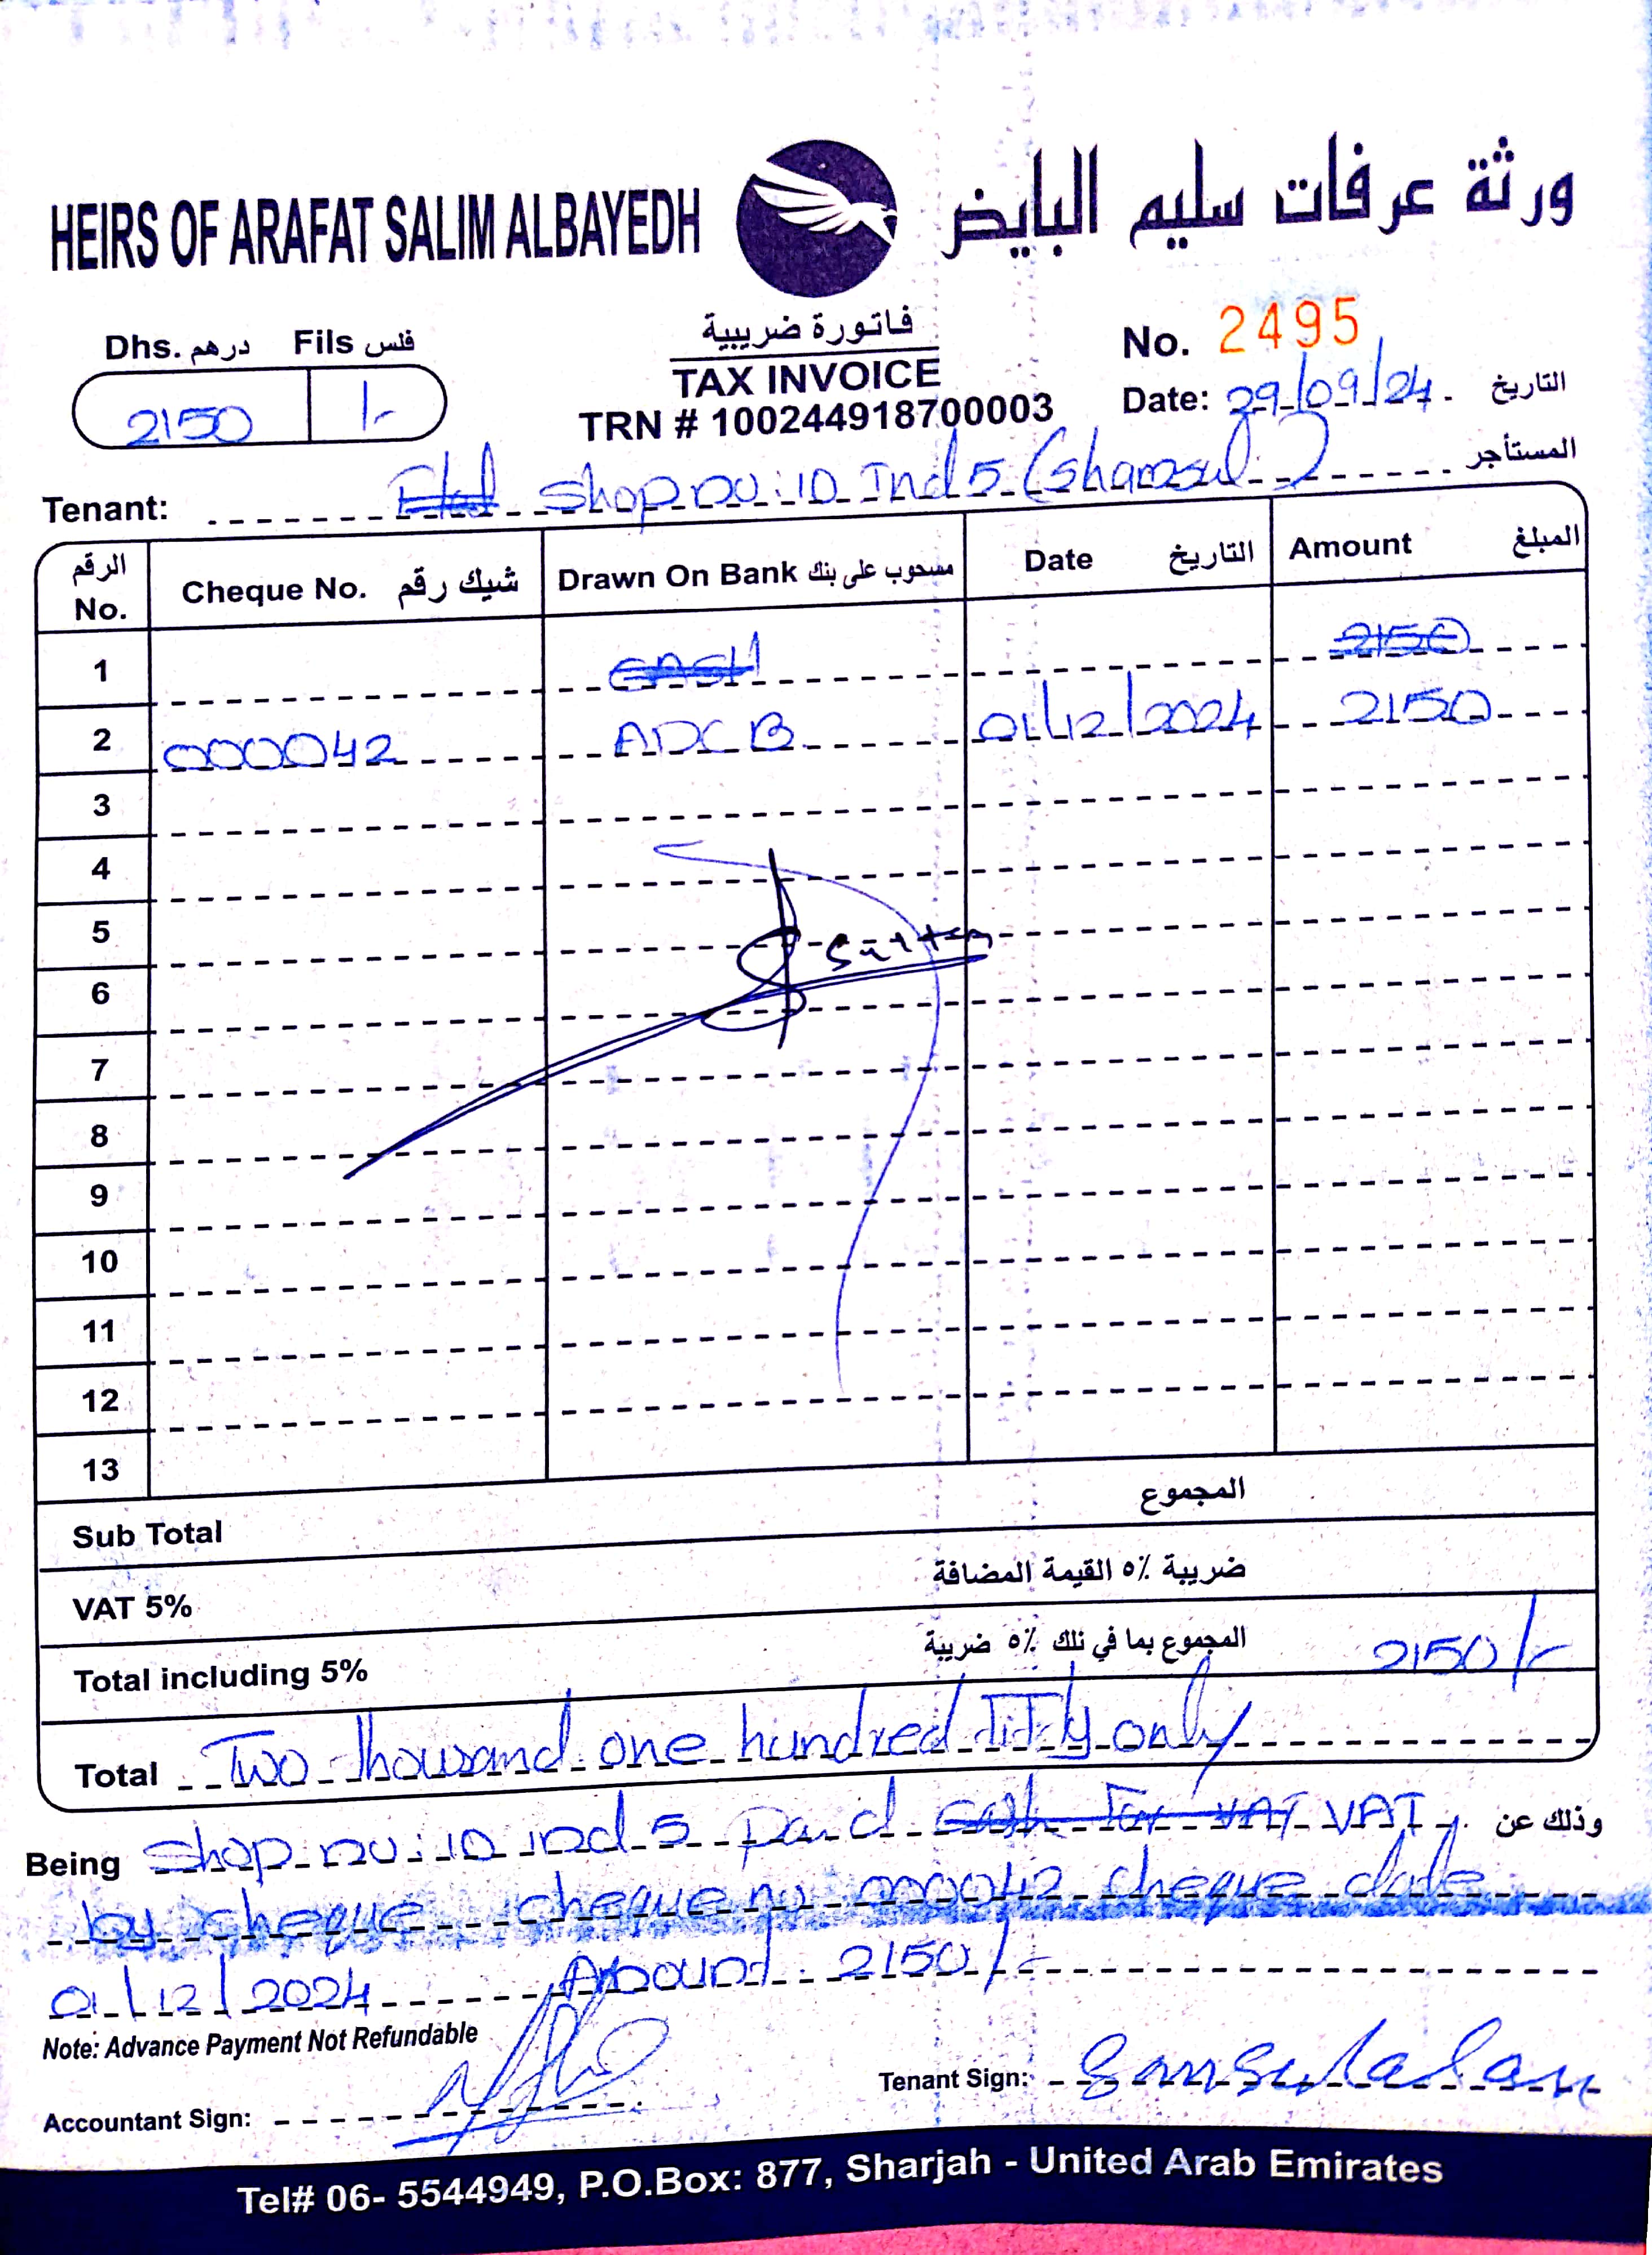 HEIRS OF ARAFAT SALIM ALBAYEDH ورثة عرفات سليم البايض
Dhs. درهم Fils فلس
2150 /-
فاتورة ضريبية
TAX INVOICE
TRN # 100244918700003
No. 2495
Date: 29/09/24. التاريخ
Tenant: Shop no: 10 Ind 5 ( المستأجر
الرقم No. Cheque No. شيك رقم Drawn On Bank مسحوب على بنك Date التاريخ Amount المبلغ
1 CASH 2150
2 000042 ADCB 01/12/2024 2150
3
4
5
6
7
8
9
10
11
12
13
Sub Total المجموع
VAT 5% ضريبة ٥٪ القيمة المضافة
Total including 5% المجموع بما في ذلك ٥٪ ضريبة 2150/-
Total Two thousand one hundred fifty only
Being Shop no: 10 ind 5 paid Cash for VAT VAT وذلك عن
by cheque cheque no 000042 cheque date
01/12/2024 Amount 2150/-
Note: Advance Payment Not Refundable
Accountant Sign: Tenant Sign:
Tel# 06- 5544949, P.O.Box: 877, Sharjah - United Arab Emirates